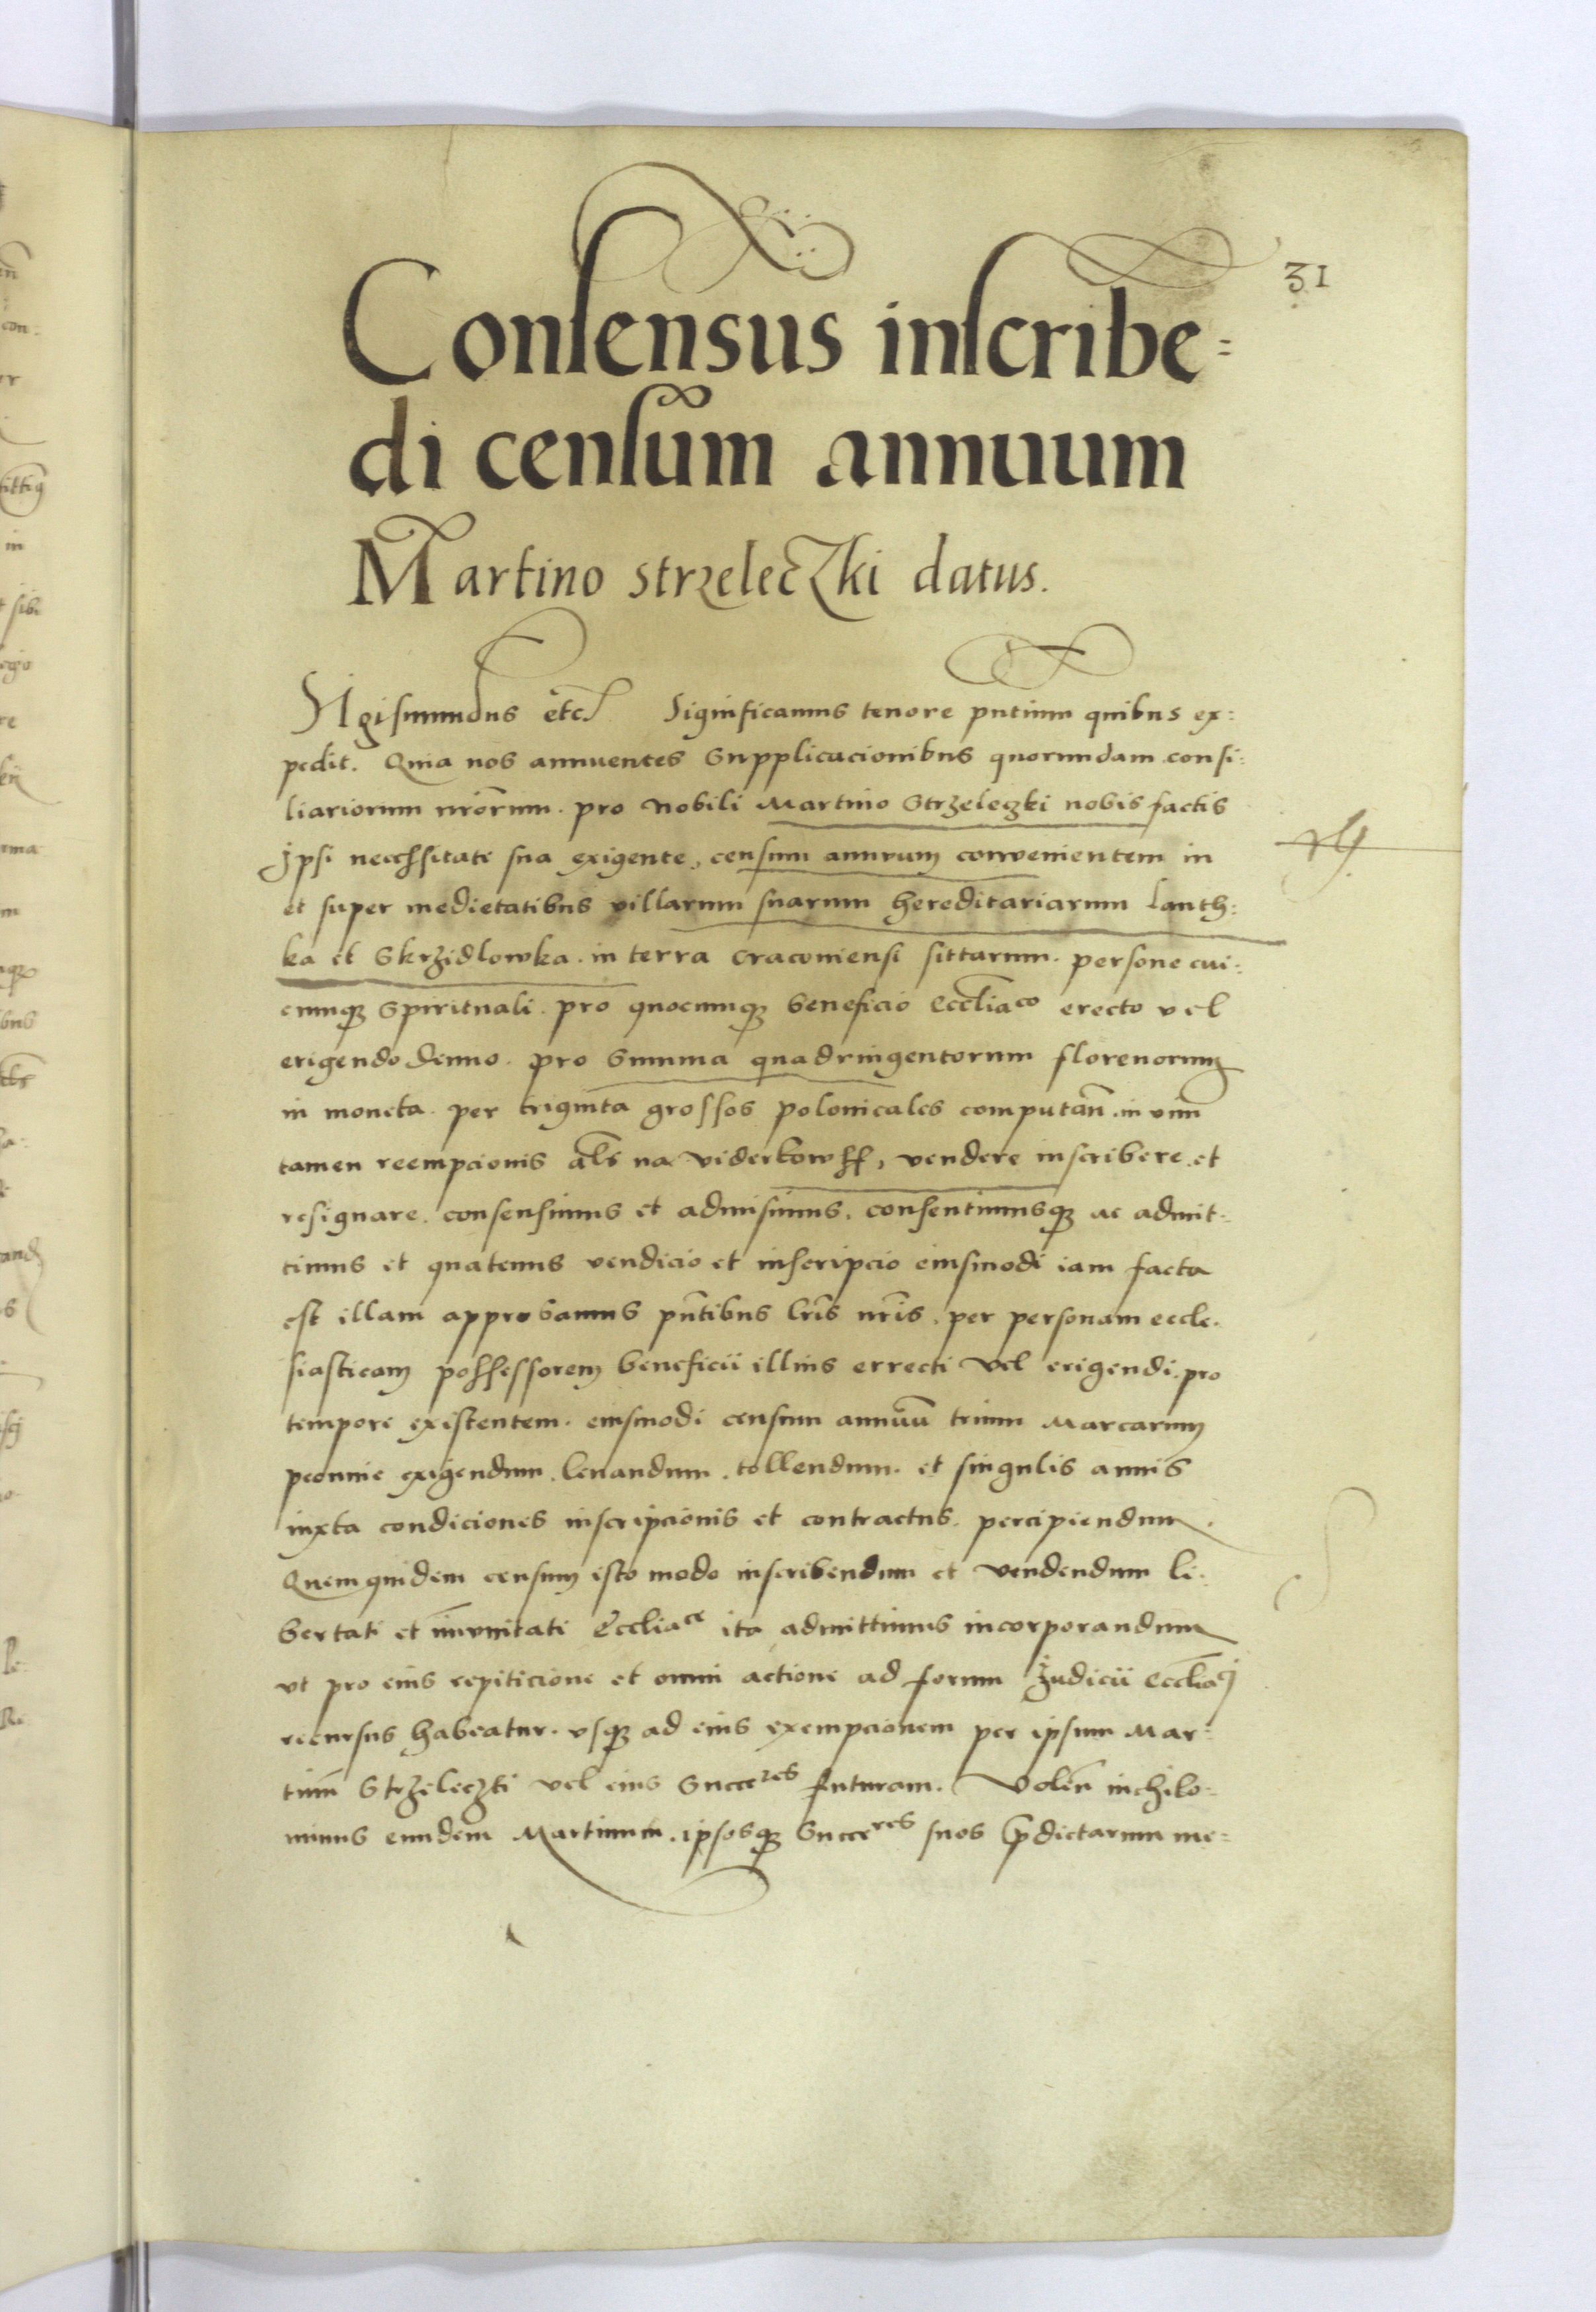 31
Consensus inscribe=
di censum annuum
Martino strzeleczki datus.
Sigismundus etc. Significamus tenore pntium quibus ex:
pedit. Quia nos annuentes Supplicacionibus quorundam consi:
liariorum nrorum. pro nobili Martino Strzeleczki nobis factis
Ipsi necessitate sua exigente, censum annuum convenientem in
et super medietatibus villarum suarum hereditariarum Lanth:
ka et Skrzidlowka. in terra Cracoviensi sittarum. persone cui:
cumqz Spirituali. pro quocumqz beneficio Eccliaco erecto vel
erigendo denuo. pro Summa quadringentorum florenorum
in moneta. per triginta grossos polonicales computan. in vim
tamen reempcionis als na viderkowff, vendere inscribere et
resignare. consensimus et admisimus. consentimusqz ac admit:
timus et quatenus vendicio et inscripcio eiusmodi iam facta
est illam approbamus pntibus lris nris. per personam eccle.
siasticam possessorem beneficii illius errecti vel erigendi. pro
tempore existentem. eiusmodi censum annuu trium Marcarum
pecunie exigendum. levandum. tollendum. et singulis annis
iuxta condiciones inscripcionis et contractus. percipiendum.
Quemquidem censum isto modo inscribendum et vendendum li.
bertati et imunitati Eccliace ita admittimus incorporandum
vt pro eius repiticione et omni actione ad forum Iudicii Eccliaci
recursus habeatur. vsqz ad eius exempcionem per ipsum Mar:
tinu Strzeleczki vel eius Succres futuram. Volen nichilo:
minus eundem Martinum. ipsosqz Succres suos pdictarum me: